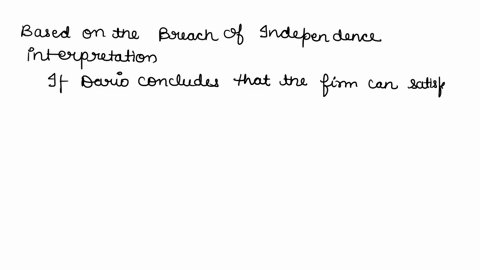 Based on the Breach of Independence
interpretation
If Dario concludes that the firm can satisf